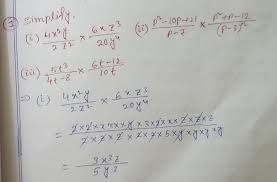 ① Simplify.
(i) 4x³y / 2z² × 6xz³ / 20y⁴ (ii) p²-10p+21 / p-7 × p²+p-12 / (p-3)²
(iii) 5t³ / 4t-8 × 6t-12 / 10t
⇒ (i) 4x³y / 2z² × 6xz³ / 20y⁴
= 2×2×x×x×y×2×3×x×z×z×z / 2×z×z×2×2×5×y×y×y×y
= 3x³z / 5y³